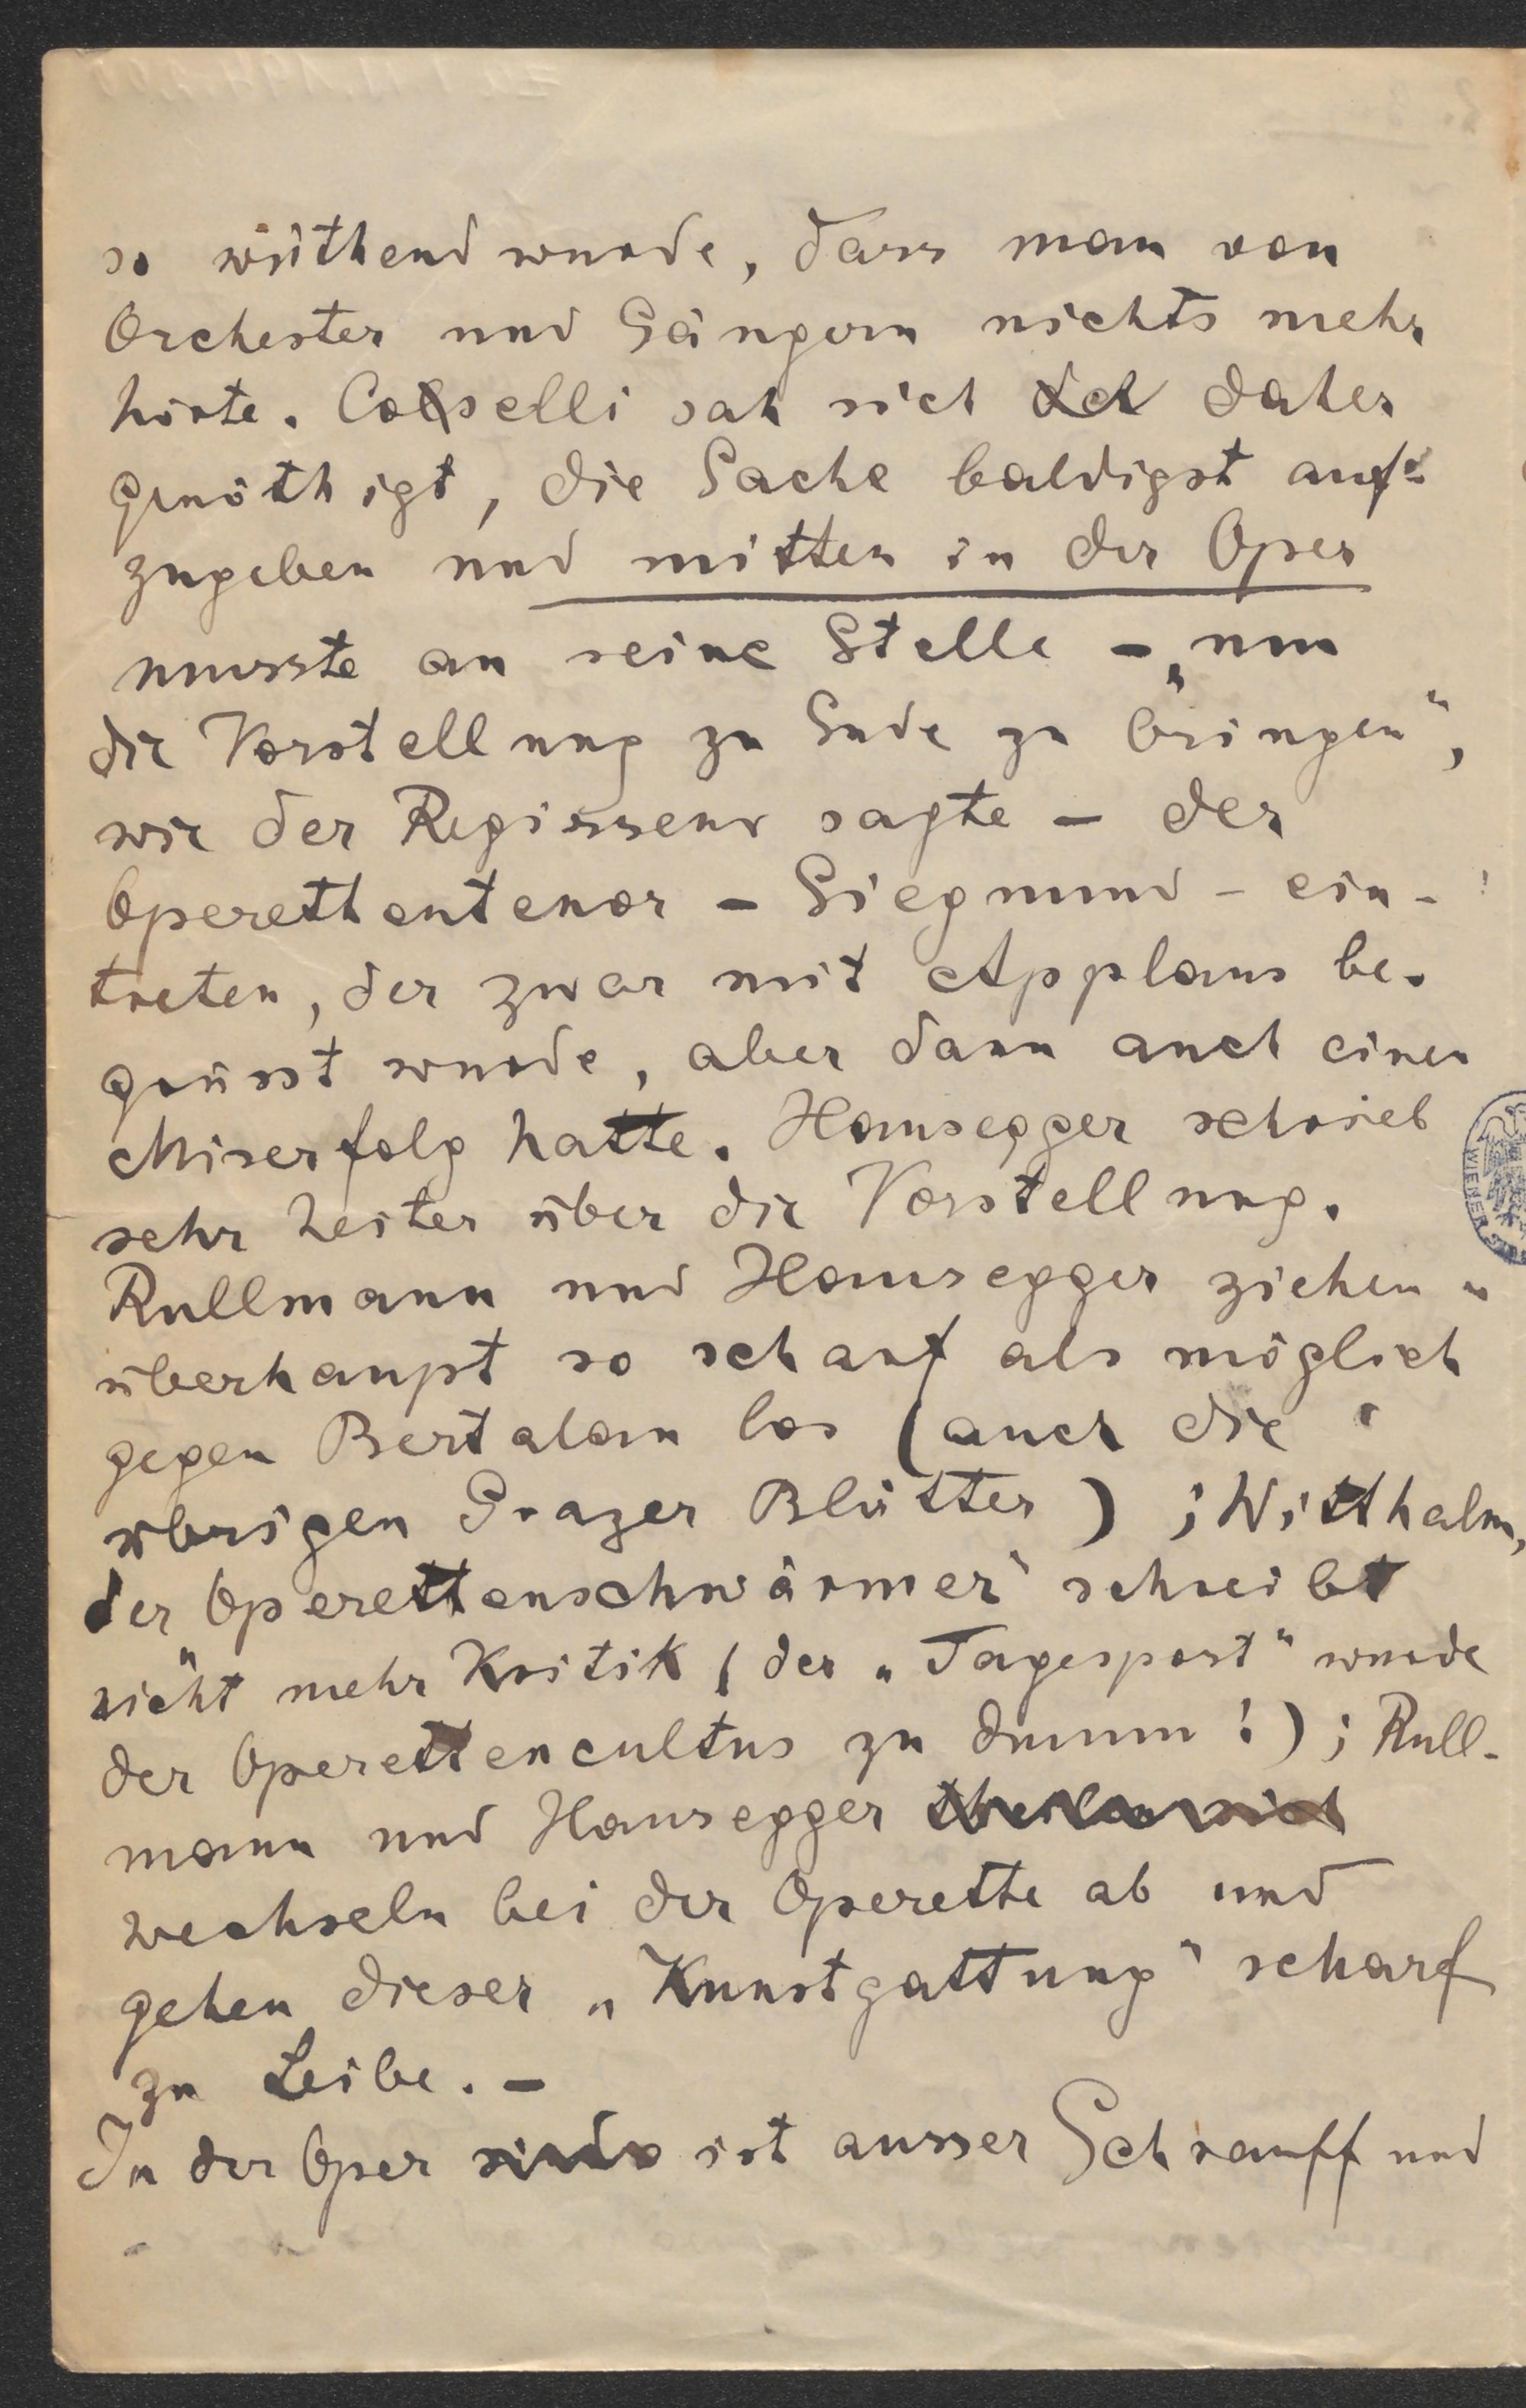 so wüthend wurde, dass man von
Orchester und Sängern nichts mehr
hörte. Coselli sah sich daher
genöthigt, die Sache baldigst auf-
zugeben und mitten in der Oper
musste an seine Stelle – „um
die Vorstellung zu Ende zu bringen“,
wie der Regisseur sagte – der
Operettentenor – Siegmund – ein-
treten, der zwar mit Applaus be-
grüsst wurde, aber dann auch einen
Miserfolg hatte. Hausegger schrieb
sehr heiter über die Vorstellung.
Rullmann und Hausegger ziehen
überhaupt so scharf als möglich
gegen Bertalan los (auch die
übrigen Grazer Blätter); Witthalm,
der „Operettenschwärmer“ schreibt
nicht mehr Kritik (der „Tagespost“ wurde
der Operettencultus zu dumm!); Rull-
mann und Hausegger
wechseln bei der Operette ab und
gehen dieser „Kunstgattung“ scharf
zu Leibe. –
In der Oper ist ausser Schrauff und
WIENER